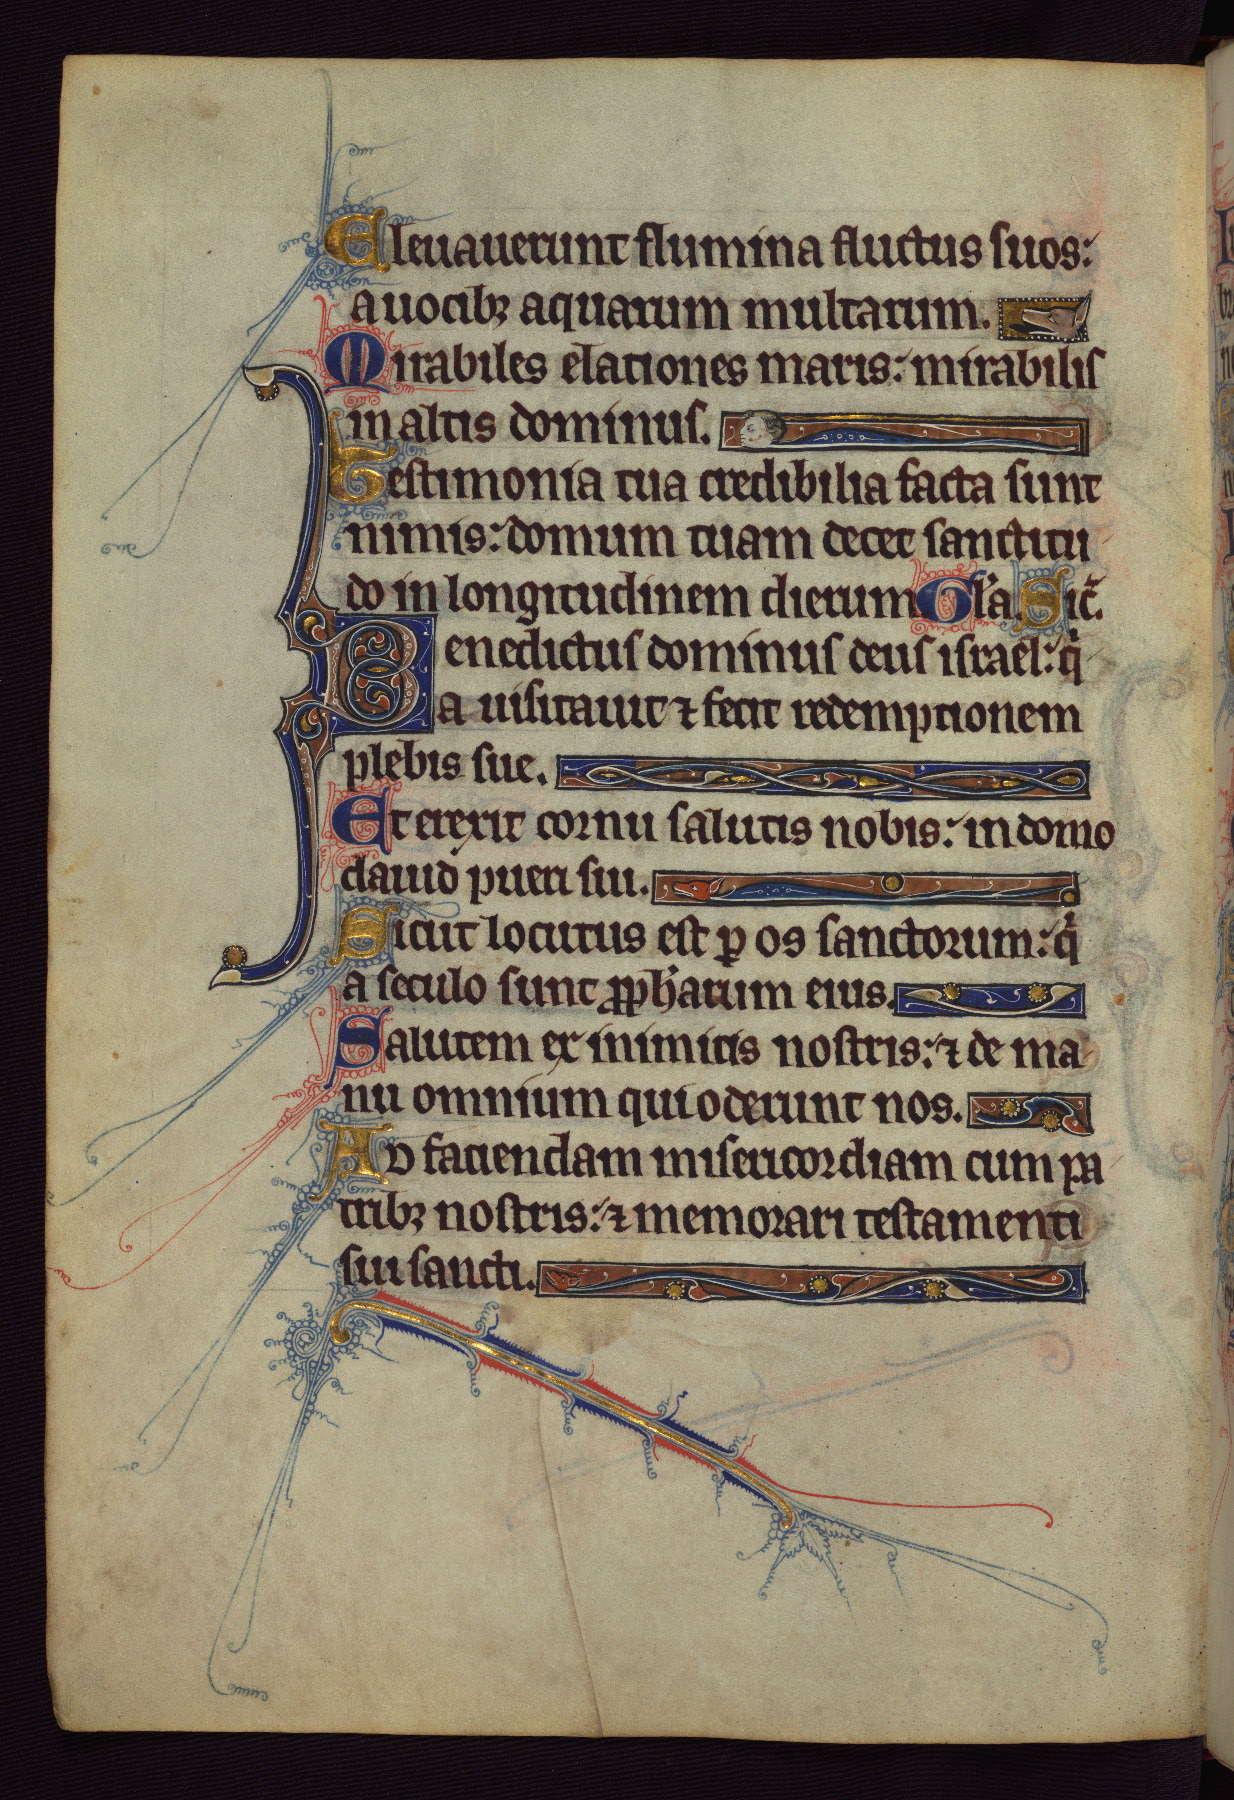 Eleuauerunt flumina fluctus suos:
a uocibꝫ aquarum multarum.
Mirabiles elationes maris: mirabilis
in altis dominus.
Testimonia tua credibilia facta sunt
nimis: domum tuam decet sanctitu
do in longitudinem dierum. Gl'a. Sic̄.
Benedictus dominus deus israel: q'
a uisitauit ⁊ fecit redemptionem
plebis sue.
Et erexit cornu salutis nobis: in domo
dauid pueri sui.
Sicut locutus est ꝑ os sanctorum: q'
a seculo sunt ꝓph'arum eius.
Salutem ex inimicis nostris: ⁊ de ma
nu omnium qui oderunt nos.
Ad faciendam misericordiam cum pa
tribꝫ nostris: ⁊ memorari testamenti
sui sancti.